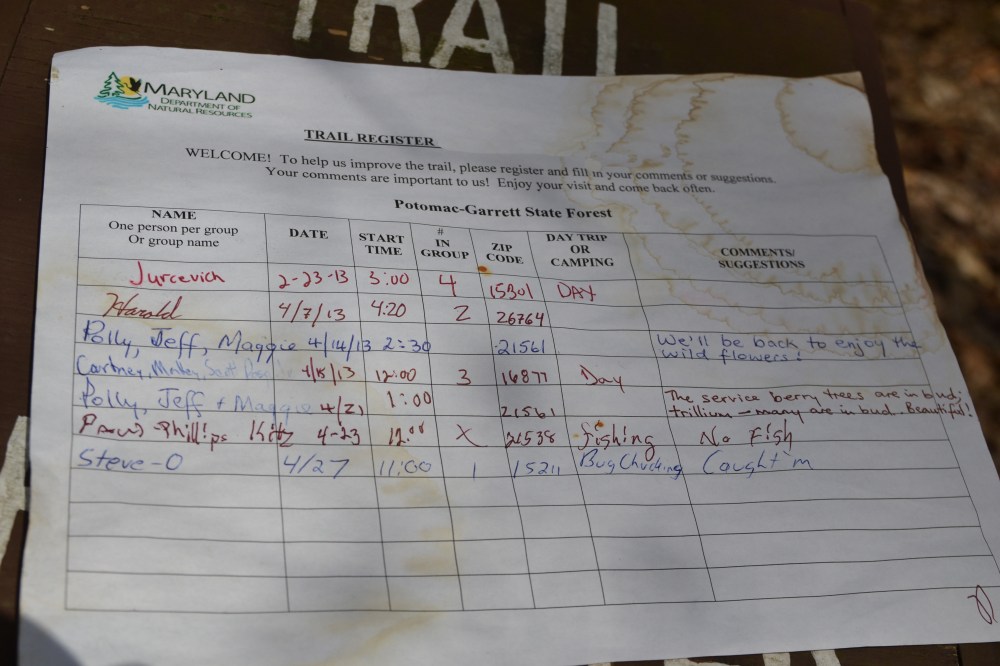 TRAIL
MARYLAND
DEPARTMENT OF
NATURAL RESOURCES
TRAIL REGISTER
WELCOME! To help us improve the trail, please register and fill in your comments or suggestions.
Your comments are important to us! Enjoy your visit and come back often.
Potomac-Garrett State Forest
NAME One person per group Or group name DATE START TIME # IN GROUP ZIP CODE DAY TRIP OR CAMPING COMMENTS/ SUGGESTIONS
Jurcevich 2-23-13 3:00 4 15301 DAY
Harold 4/7/13 4:20 2 26764
Polly, Jeff, Maggie 4/14/13 2:30 21561 We'll be back to enjoy the wild flowers!
4/15/13 12:00 3 16877 Day
Polly, Jeff + Maggie 4/21 1:00 21561 The service berry trees are in bud; trillium - many are in bud. Beautiful!
Phillips Kitz 4-23 12:00 X 21538 fishing No Fish
Steve-O 4/27 11:00 1 15211 Bug Chucking Caught'm